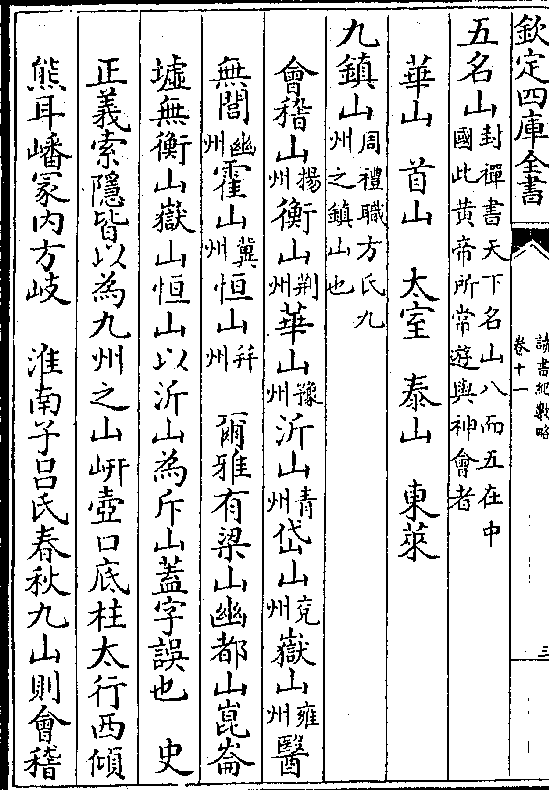 欽定四庫全書
讀書紀數略
卷十一
三
五名山封禪書天下名山八而五在中
國此黄帝所常遊與神會者
華山　首山　太室　泰山　東萊
九鎮山周禮職方氏九
州之鎮山也
會稽山揚州衡山荆州華山豫州沂山青州岱山兖州嶽山雍州醫
無閭幽州霍山冀州恒山幷州　爾雅有梁山幽都山崑崙
墟無衡山嶽山恒山以沂山為斥山蓋字誤也　史
正義索隱皆以為九州之山岍壺口底柱太行西傾
熊耳嶓冢内方岐　淮南子吕氏春秋九山則會稽